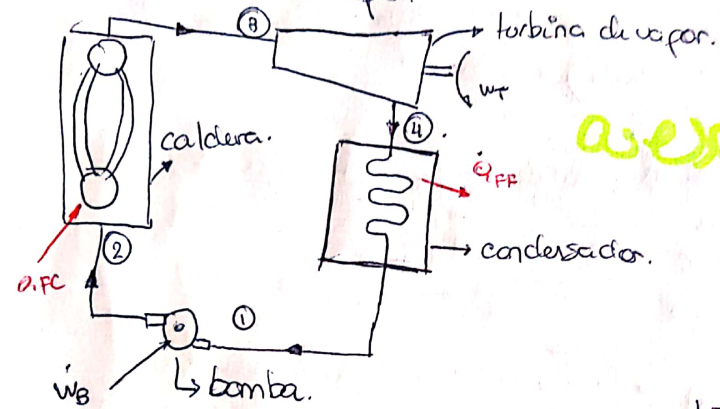 ③
turbina de vapor.
ẇT
④.
caldera.
Q̇FF
②
condensador.
Q.FC
①
ẆB
bomba.